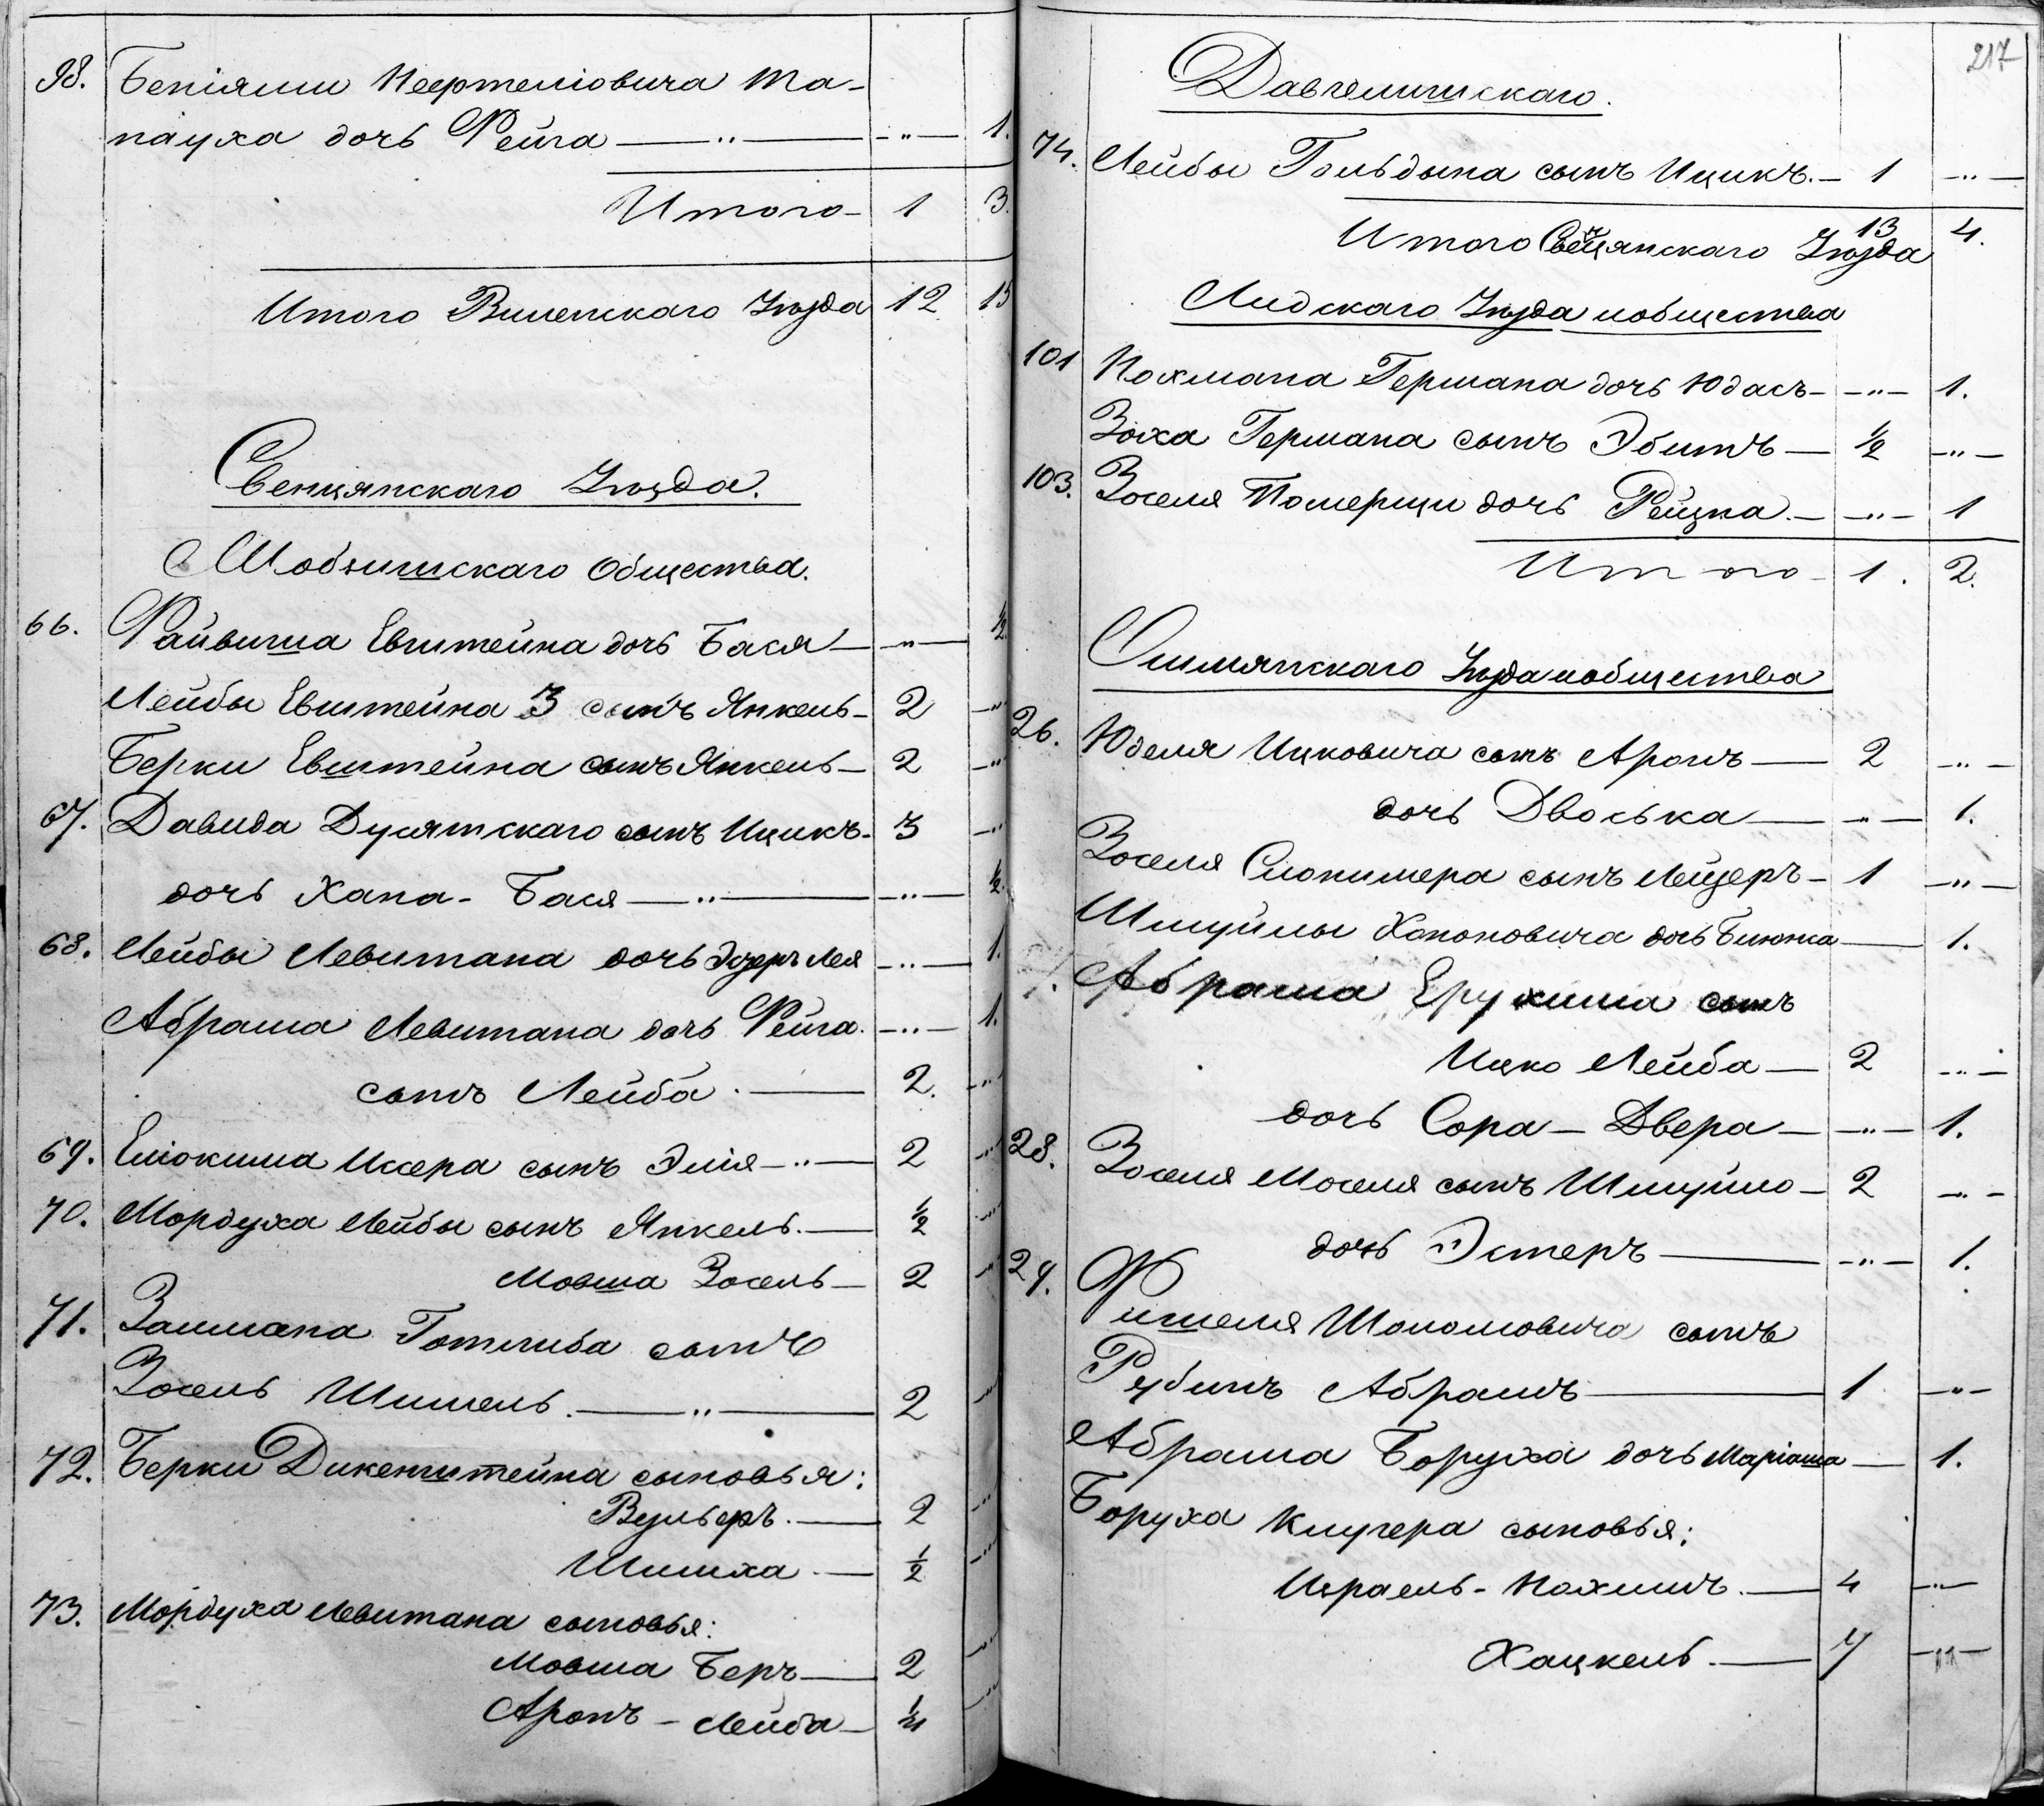 98. Беніямин Нефтеліовича Та-
пауха дочь Рейга —„— —„— 1.
Итого — 1 3.
Итого Виленскаго Уѣзда 12. 15
Свенцянскаго Уѣзда.
Шобишскаго Общества.
66. Файвиша Евштейна дочь Бася — —„— ½
Лейбы Евштейна 3 сынъ Янкель — 2 —„
Берки Евштейна сынъ Янкель — 2 —„
67. Давида Дусятскаго сынъ Ицикъ. 3 —„
дочь Хана - Бася —„— —„— ½
68. Лейбы Левитана дочь Лея —„— 1.
Абрама Левитана дочь Рейга. —„— 1.
сынъ Лейба. — 2. —„
69. Еліокима Иссера сынъ Элія —„— 2 —„
70. Мордуха Лейбы сынъ Янкель. — ½ —„
Мовша Зосель — 2 —„
71. Залмана Готлиба сынъ
Зосель Шимель. —„— 2 —„
72. Берки Дикенштейна сыновья:
Вульфъ. — 2 —„
Шимха — ½ —„
73. Мордуха Левитана сыновья:
Мовша Беръ — 2 —„
Аронъ - Лейба —
217
Давгелишскаго.
74. Лейбы Гольдына сынъ Ицикъ. — 1 —„—
Итого Свенцянскаго Уѣзда 13 4.
Лидскаго Уѣзда и общества
101 Нохмана Германа дочь Юдасъ — —„— 1.
Зоха Германа сынъ — ½ —„—
103. Зоселя Померщи дочь Рейзна. — —„— 1
Итого — 1. 2.
Ошмянскаго Уѣзда и общества
26. Юделя Ицковича сынъ Аронъ — 2 —„—
дочь Двоська — —„— 1.
Зоселя Слонимера сынъ Лейзеръ — 1 —„—
Шмуйлы Хононовича дочь — 1.
Абрама Ерухима сынъ
Ицко Лейба — 2 —„—
дочь Сора — Двера — —„— 1.
28. Зоселя Моселя сынъ Шмуйло — 2 —„—
дочь Эстеръ — —„— 1.
29. Фишеля Шоломовича сынъ
Рубинъ Абрамъ — 1 —„—
Абрама Боруха дочь Маріаша — 1.
Боруха Клугера сыновья:
Израель - Нохимъ. — 4 —„—
Хацкель. — 7 —„—